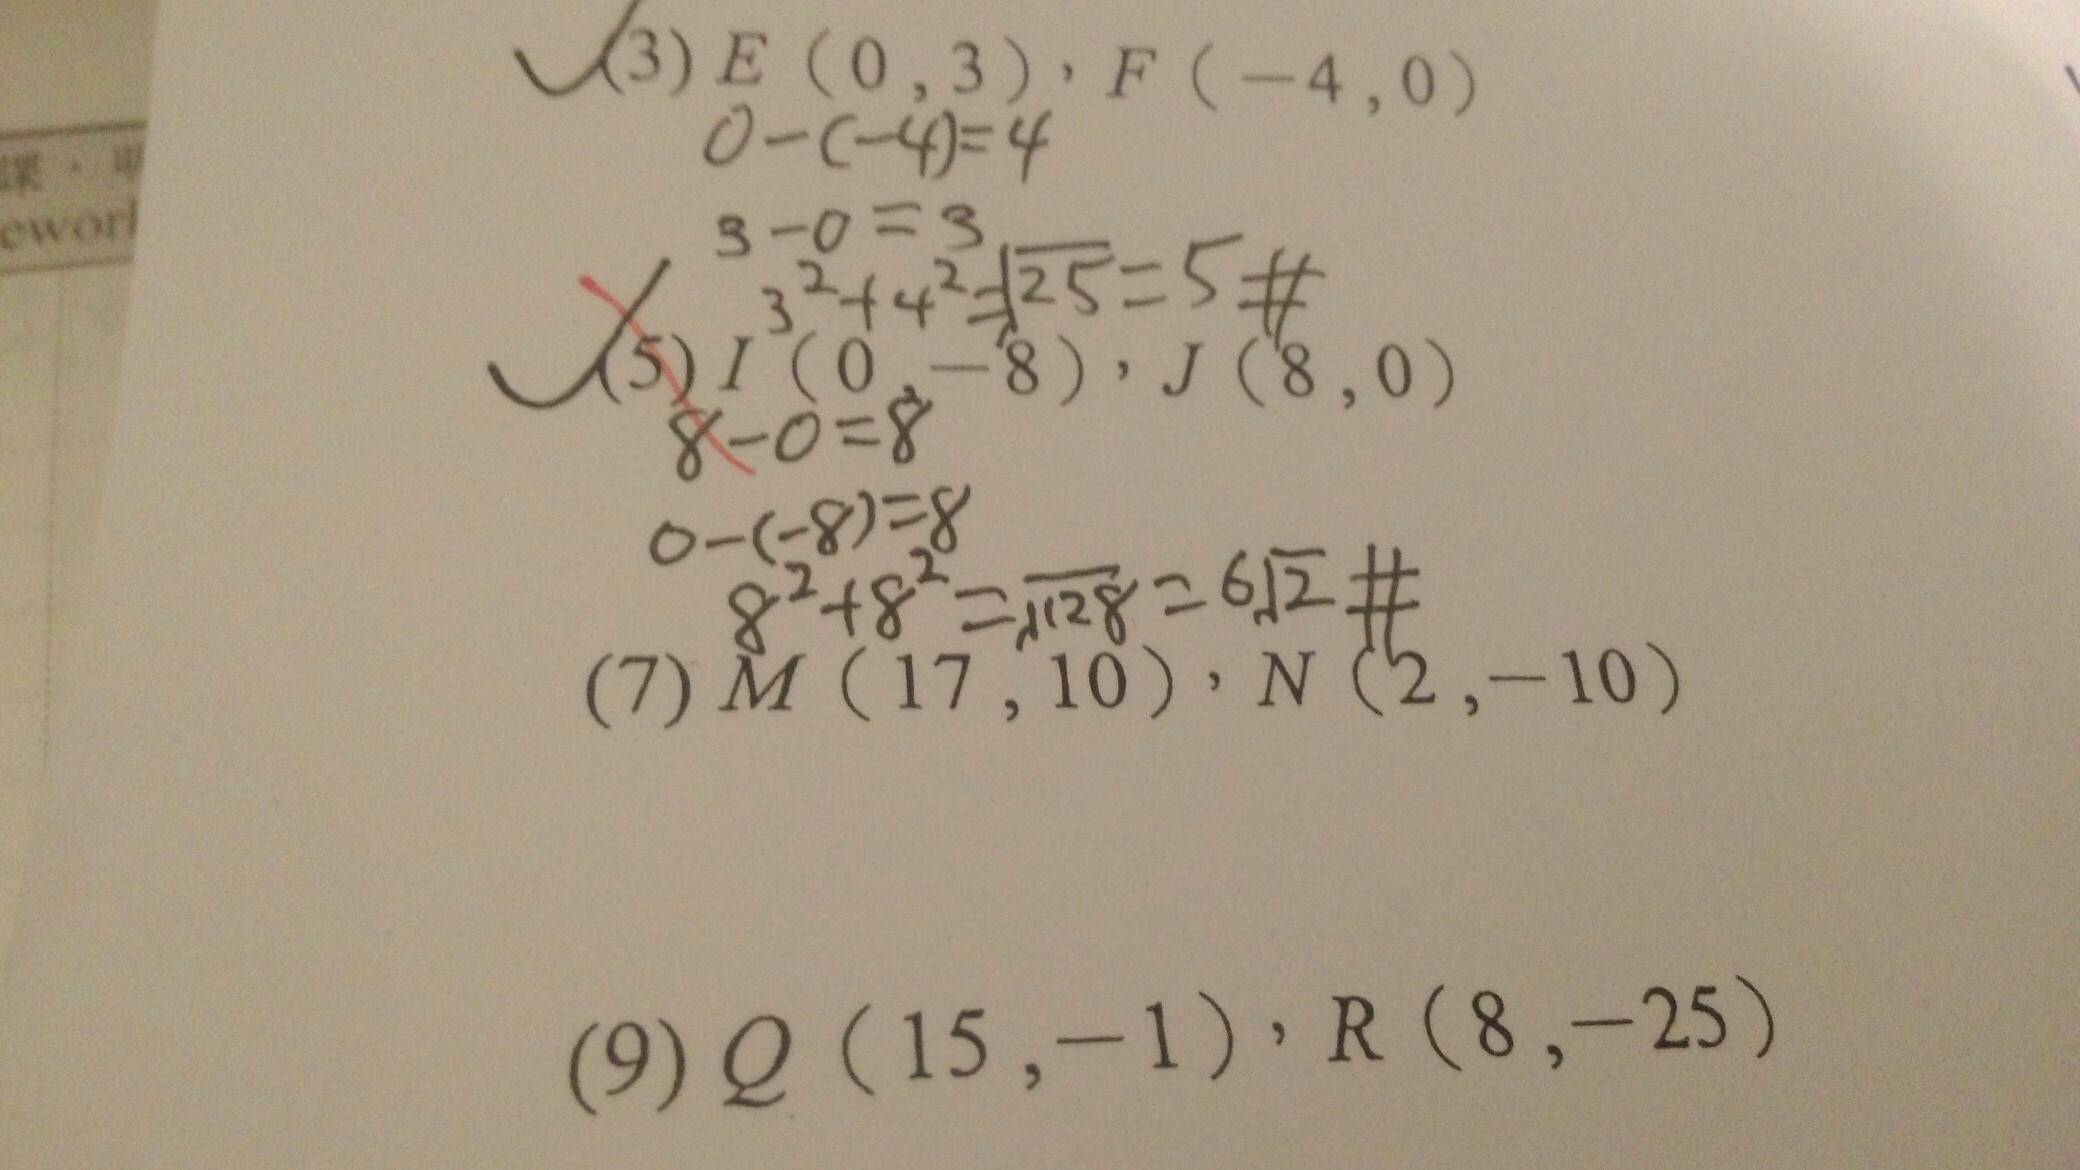 (3) E (0,3),F(-4,0)
0-(-4)=4
3-0=3
3²+4²=√25=5#
(5) I (0,-8),J(8,0)
8-0=8
0-(-8)=8
8²+8²=√128=6√2#
(7) M (17,10),N(2,-10)
(9) Q (15,-1),R(8,-25)
課.
ewor